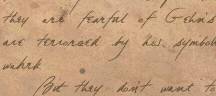 they are fearful of Gehn's
are terrorized by his symbols
which
But they don't want to